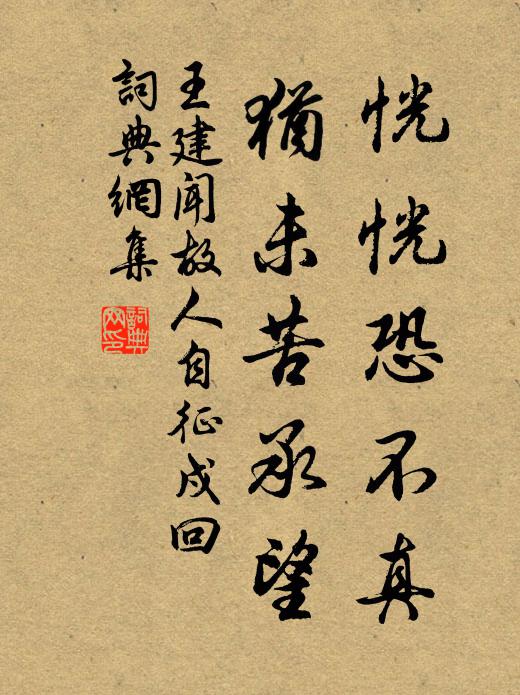 恍恍恐不真
猶未苦承望
王建聞故人自征戍回
詞典網集
詞典网印